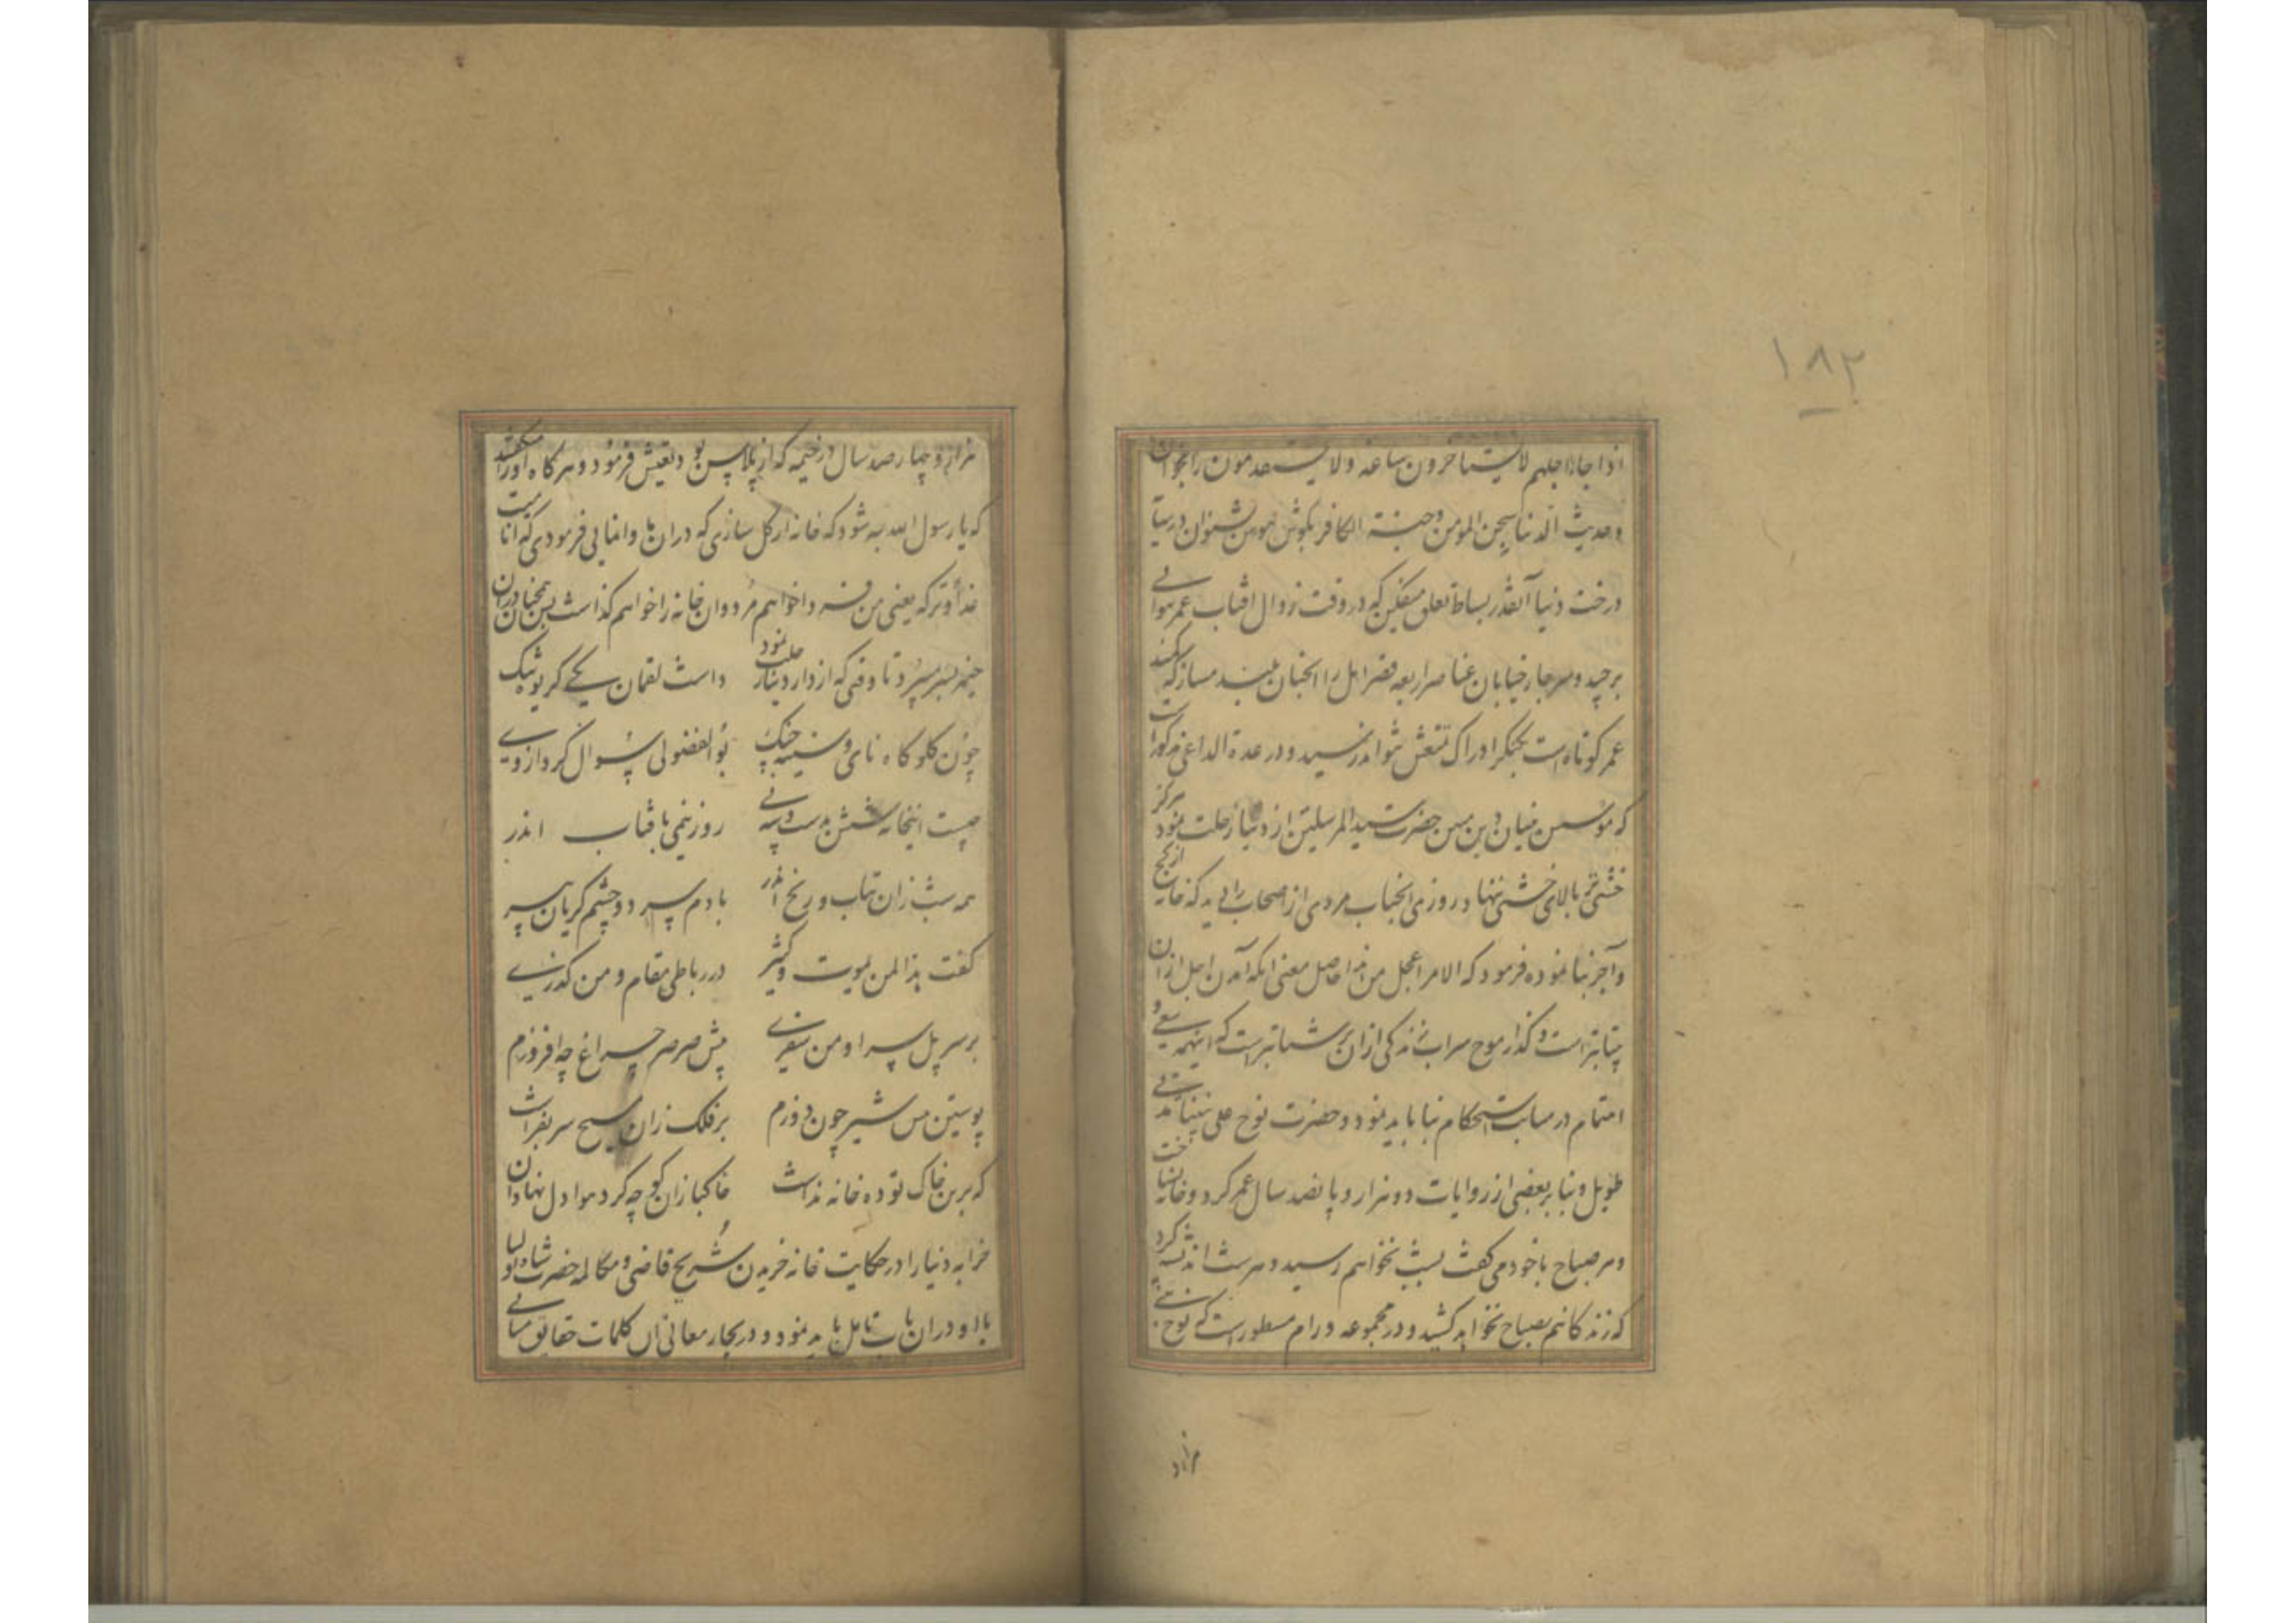 ۱۸۳
اذا جاء اجلهم لا یستاخرون ساعه ولا یستقدمون را بخوان
و حدیث الدنیا سجن المومن و جنة الکافر بگوش هوش بشنو آن در سایه
درخت دنیا آنقدر بساط تعلق میفکن که در وقت زوال افتاب عمر توانی
برچید و در چار خیابان عناصر اربعه قصر امل را انچنان بلند مساز که کمند
عمر کوتاه است بکنکر ادراک تتمعش نتواند رسید و در عدة الداعی مذکور است
که موسس بنیان دین مبین حضرت سید المرسلین از دنیا رحلت نمود هرگز
خشتی بر بالای خشتی ننهاد روزی انجناب مردی از اصحاب را دید که خانه از گچ
و آجر بنا نموده فرمود که الامر اعجل من هذا حاصل معنی انکه آمدن اجل از ان
شتابتر است و گذار موج سراب زندگی از ان پر شتابتر است که اینهمه سعی و
اهتمام در متانت و استحکام بنا باید نمود و حضرت نوح علی نبینا مدتی
طویل و بنا بر بعضی از روایات دو هزار و پانصد سال عمر کرد و خانه نساخت
و هر صباح با خود می گفت بشب نخواهم رسید و هر شب اندیشه کرد
که زندگانیم بصباح نخواهد کشید و در مجموعه ورام مسطور است که نوح نبی
هزار و
هزار و چهار صد سال در خیمه که از پلاس بود تعیش فرمود و هرگاه او را میگفتند
که یا رسول الله چه شود که خانه از گل سازی که در ان بیاسائی فرمودی که انا میت
غدا و ترکه یعنی من فردا خواهم مرد و ان خانه را خواهم گذاشت پس همچنان در ان
خیمه بسر میبرد تا وقتی که از دار دنیا رحلت نمود داشت لقمان یکی کریچه تنک
چون گلوگاه نای و سینه چنک بو الفضولی سوال کرد از وی
چیست اینخانه شش بدست و سه پی روز نیمی بافتاب اندر
همه شب زان تباب و رنج اندر با دم سرد و چشم گریان پیر
گفت هذا لمن یموت کثیر در رباطی مقام و من گذری
بر سر پل سرا و من سفری پیش صرصر چراغ چه افروزم
پوستین پس شیر چون دوزم بر فلک زان مسیح سر بفراشت
که برین خاک توده خانه نداشت خاکبازان کوچه گرد هوا دل نهادان
خرابه دنیا را در حکایت خانه خریدن شریح قاضی و مکالمه حضرت شاه اولیا
با او در ان باب تامل باید نمود و در بحار معانی ان کلمات حقایق مبانی